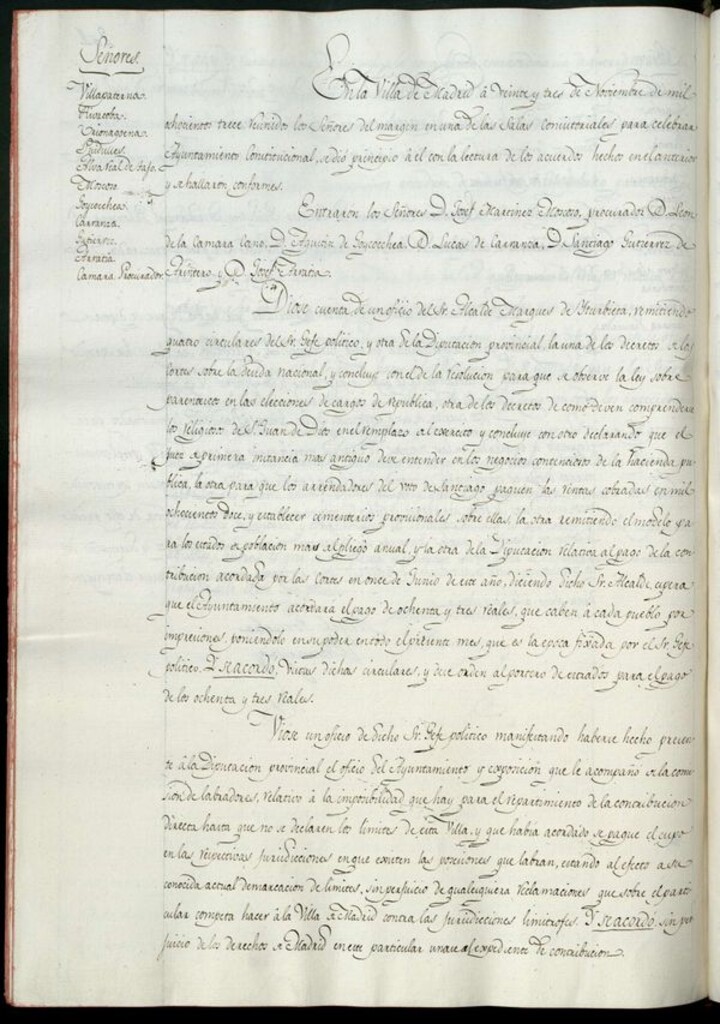 Señores.
Villapaterna.
Fuorcoba.
Uriortagoena.
Alva real de Tajo.
Moscoso
Goycochea.
Carranza.
Gutierrez
Arratia
Camara Procurador.
En la Villa de Madrid á veinte y tres de Noviembre de mil
ochocientos trece reunidos los Señores del margen en una de las Salas consistoriales para celebrar
Ayuntamiento Constitucional, se dió principio á él con la lectura de los acuerdos hechos en el anterior
y se hallaron conformes.
Entraron los Señores D. Josef Martinez Moscoso, procurador D. Leon
de la Camara Cano, D. Agustin de Goycochea, D. Lucas de Carranza, D. Santiago Gutierrez de
Ariñtero y D. Josef Arratia.
Diose cuenta de un oficio del Sr. Alcalde Marques de Yturbieta, remitiendo
quatro circulares del Sr. Gefe politico, y otra de la Diputacion provincial, la una de los decretos de las
Cortes sobre la deuda nacional, y concluye con el de la resolucion para que se observe la ley sobre
parentescos en las elecciones de cargos de republica, otra de los decretos de como deven comprenderse
los religiosos de S. Juan de Dios en el remplazo al exercito y concluye con otro declarando que el
Juez de primera instancia mas antiguo deve entender en los negocios contenciosos de la hacienda pu-
blica, la otra para que los arrendadores del voto de Santiago paguen las rentas cobradas en mil
ochocientos doce, y establecer cementerios provisionales sobre ellas, la otra remitiendo el modelo pa-
ra los estados de poblacion mas al pliego anual, y la otra de la Diputacion relativa al pago de la con-
tribucion acordada por las Cortes en once de Junio de este año, diciendo dicho Sr. Alcalde espera
que el Ayuntamiento acordará el pago de ochenta y tres reales, que caben á cada pueblo por
impresiones, poniendolo en su poder en todo el presente mes, que es la epoca fixada por el Sr. Gefe
politico. Y se acordó, vistas dichas circulares, y dese orden al portero de estrados para el pago
de los ochenta y tres reales.
Viose un oficio de dicho Sr. Gefe politico manifestando haberse hecho presen-
te á la Diputacion provincial el oficio del Ayuntamiento y exposicion que le acompañó de la comi-
sion de labradores, relativo á la imposibilidad que hay para el repartimiento de la contribucion
directa hasta que no se declaren los limites de esta Villa, y que habia acordado se pague el cupo
en las respectivas jurisdicciones en que existen las posesiones que labran, estando al efecto á su
conocida actual demarcacion de limites, sin perjuicio de qualesquiera reclamaciones que sobre el parti-
cular competa hacer á la Villa de Madrid contra las jurisdicciones limitrofes. Y se acordó, sin per-
juicio de los derechos de Madrid en este particular unase al expediente de contribucion.